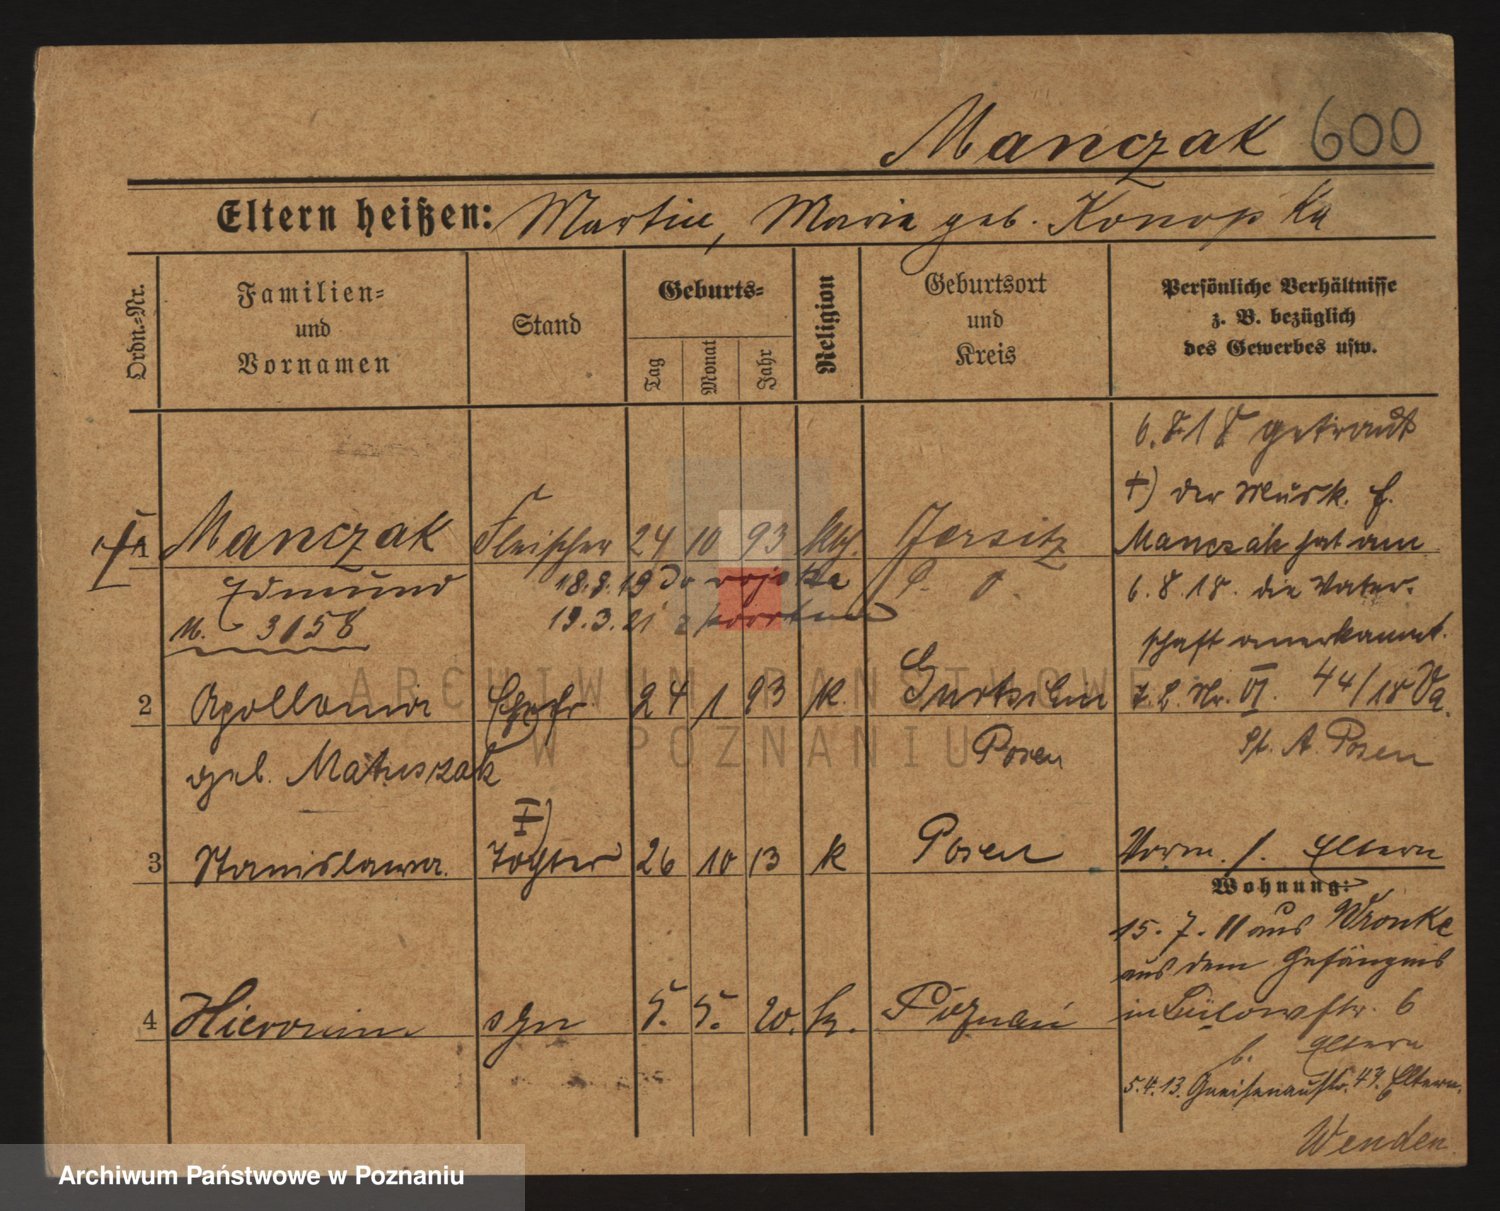 Manczak 600
Eltern heißen: Martin, Marie geb. Konopka
Ordn.=Nr.
Familien=
und
Vornamen
Stand
Geburts=
Tag
Monat
Jahr
Religion
Geburtsort
und
Kreis
Persönliche Verhältnisse
z. B. bezüglich
des Gewerbes usw.
6. 8. 18 getraut
+) der Musk. E.
1 Manczak Fleischer 24 10 93 Jersitz
Manczak hat am
Edmund 18.9.19 do wojska
6.8.18. die Vater-
M. 3158 19.3.21 z
schaft anerkannt.
2 Apollonia Ehefr 24 1 93 k. Gurtschin
J. L. Nr. VI. 44/18 Va.
geb. Matuszak Posen
St. A. Posen
3 Stanislawa. Tochter 26 10 13 k Posen
Vorm. f. Eltern
Wohnung:
15. 7. 11 aus Wronke
aus dem Gefängnis
4 Hieronim syn 5. 5. 20. k. Poznań
in Bülowstr. 6
b. Eltern
5.4.13. Gneisenaustr. 43. Eltern.
Wenden
ARCHIWUM PAŃSTWOWE
W POZNANIU
Archiwum Państwowe w Poznaniu